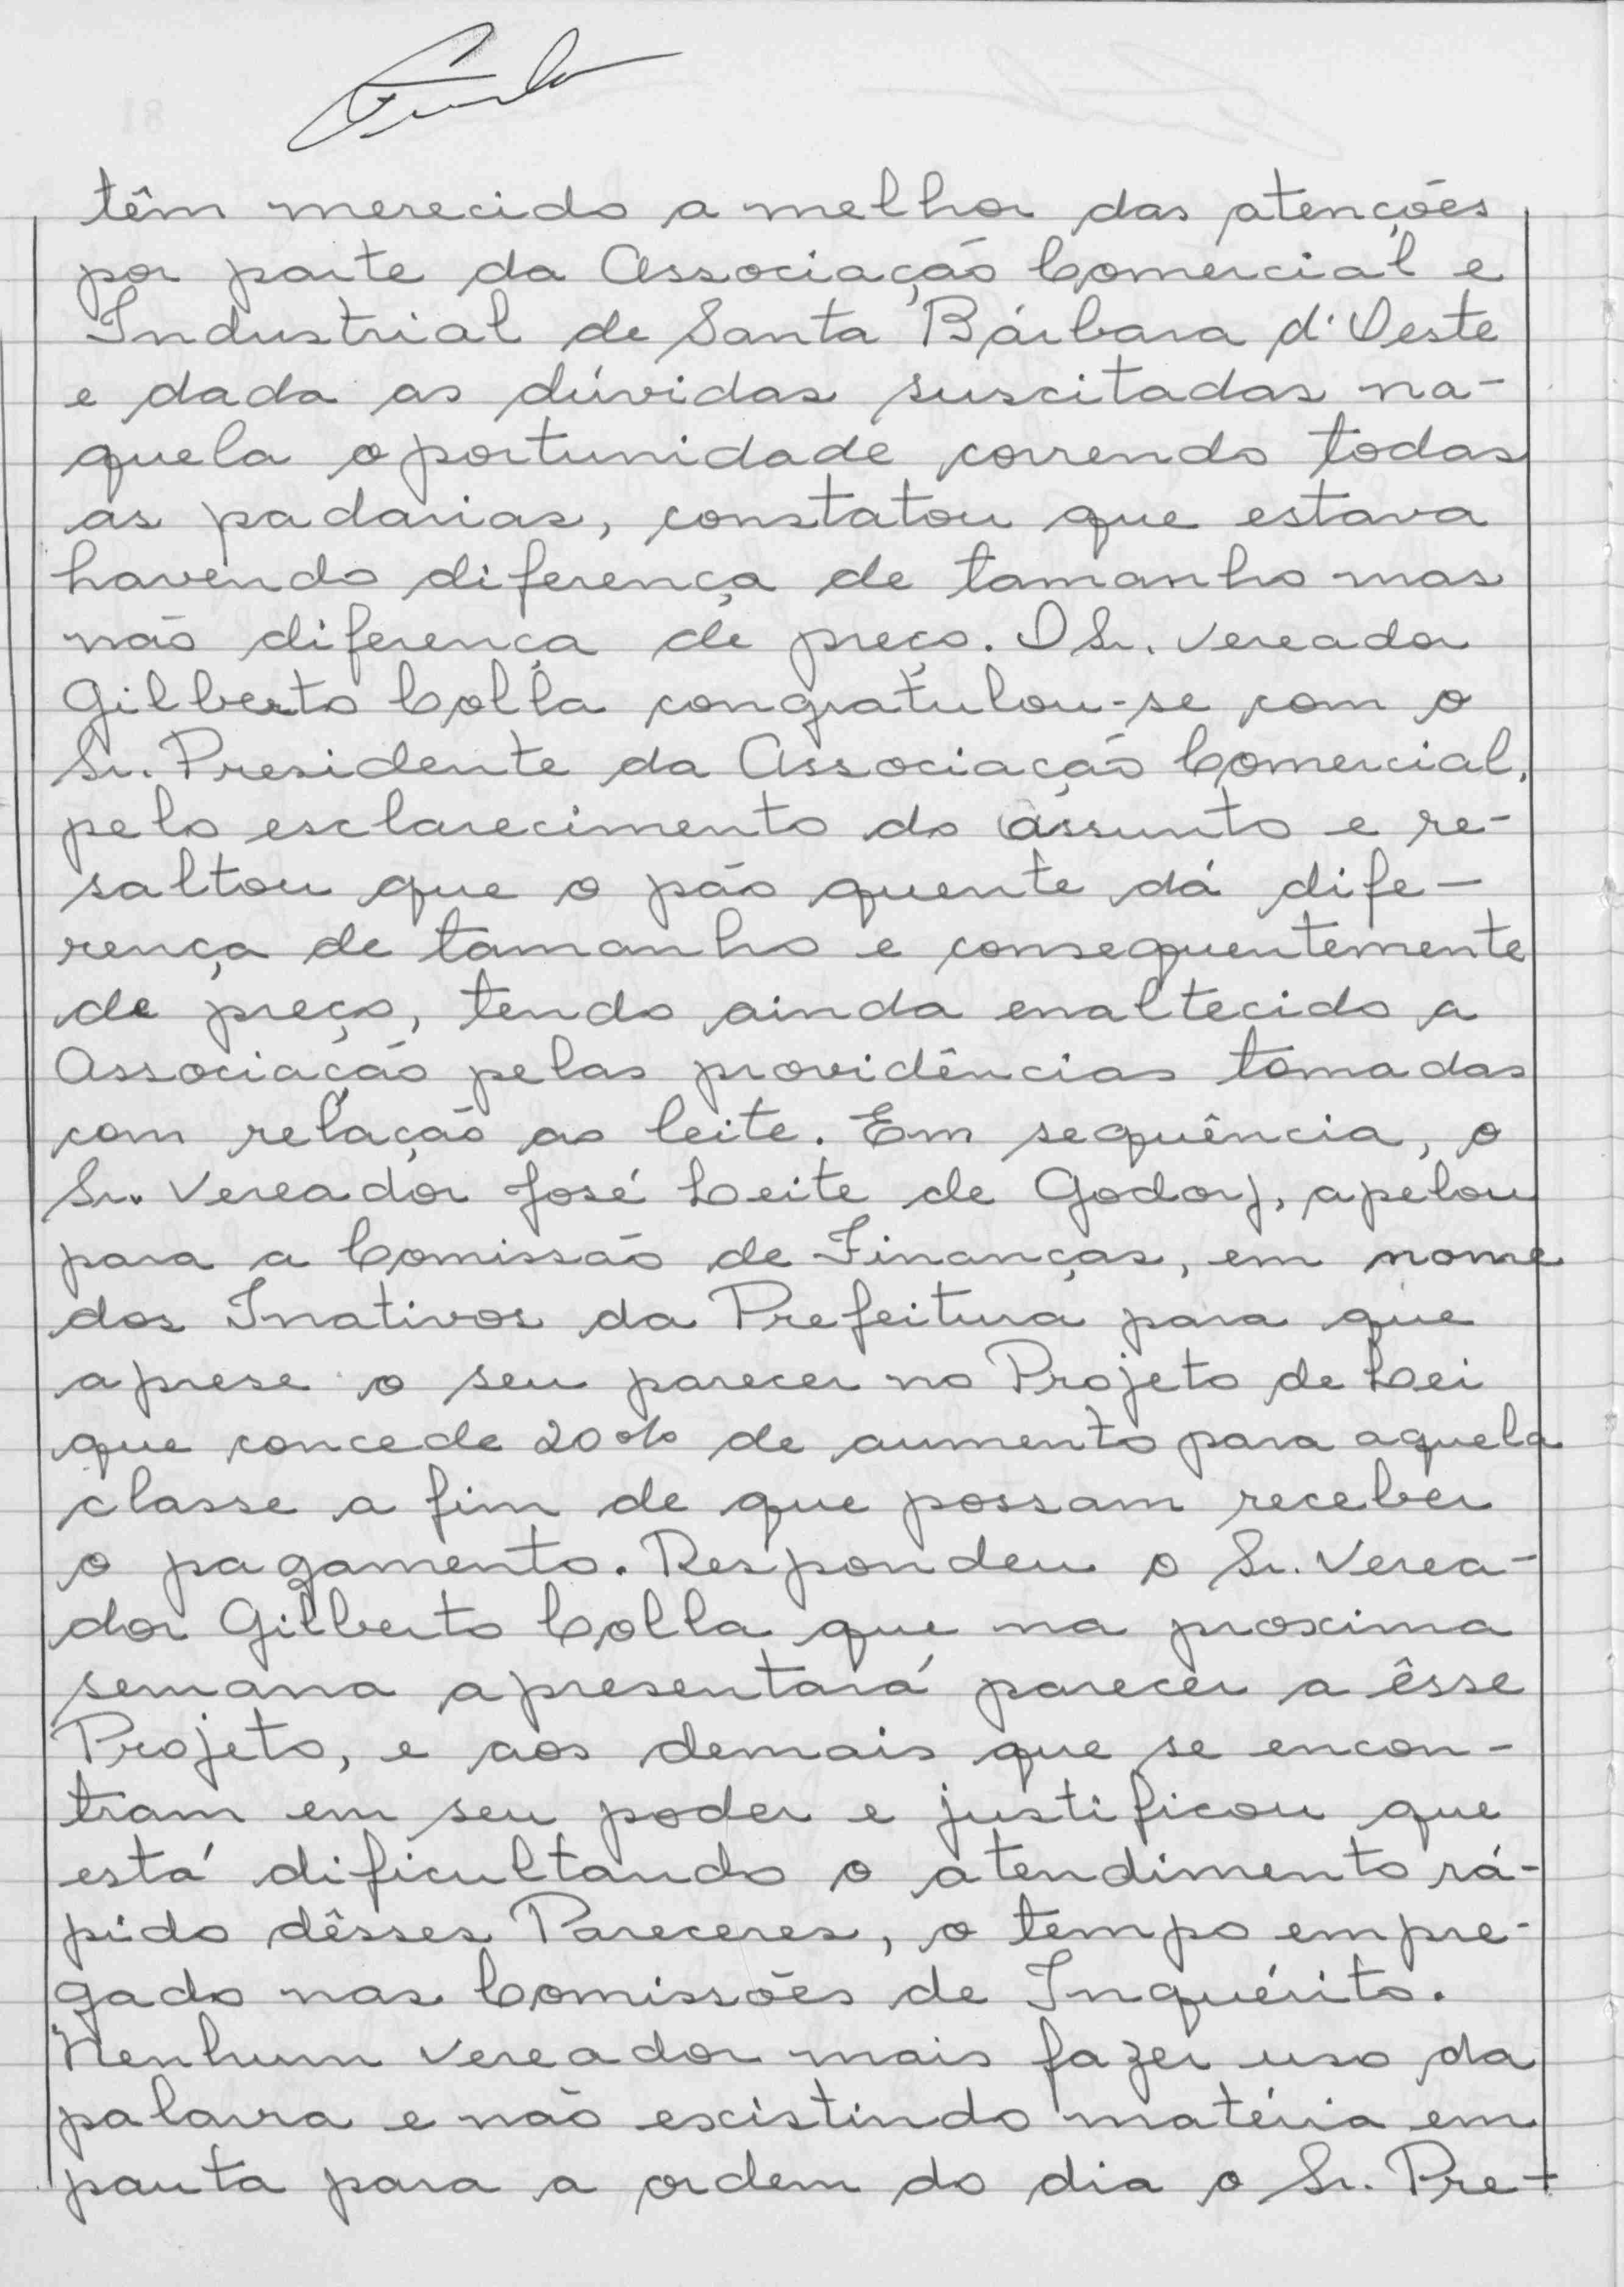 têm merecido a melhor das atenções
por parte da Associação Comercial e
Industrial de Santa Bárbara d'Oeste
e dada as dúvidas suscitadas na-
quela oportunidade correndo todas
as padarias, constatou que estava
havendo diferença de tamanho mas
não diferença de preço. O Sr. Vereador
Gilberto Colla congratulou-se com o
Sr. Presidente da Associação Comercial,
pelo esclarecimento do assunto e re-
saltou que o pão quente dá dife-
rença de tamanho e consequentemente
de preço, tendo ainda enaltecido a
Associação pelas providências tomadas
com relação ao leite. Em sequência, o
Sr. Vereador José Leite de Godoy, apelou
para a Comissão de Finanças, em nome
dos Inativos da Prefeitura para que
aprese o seu parecer no Projeto de Lei
que concede 20% de aumento para aquela
classe a fim de que possam receber
o pagamento. Respondeu o Sr. Verea-
dor Gilberto Colla que na proxima
semana apresentará parecer a êsse
Projeto, e aos demais que se encon-
tram em seu poder e justificou que
está dificultando o atendimento rá-
pido dêsses Pareceres, o tempo empre-
gado nas Comissões de Inquérito.
Nenhum vereador mais fazer uso da
palavra e não existindo matéria em
pauta para a ordem do dia o Sr. Pre-